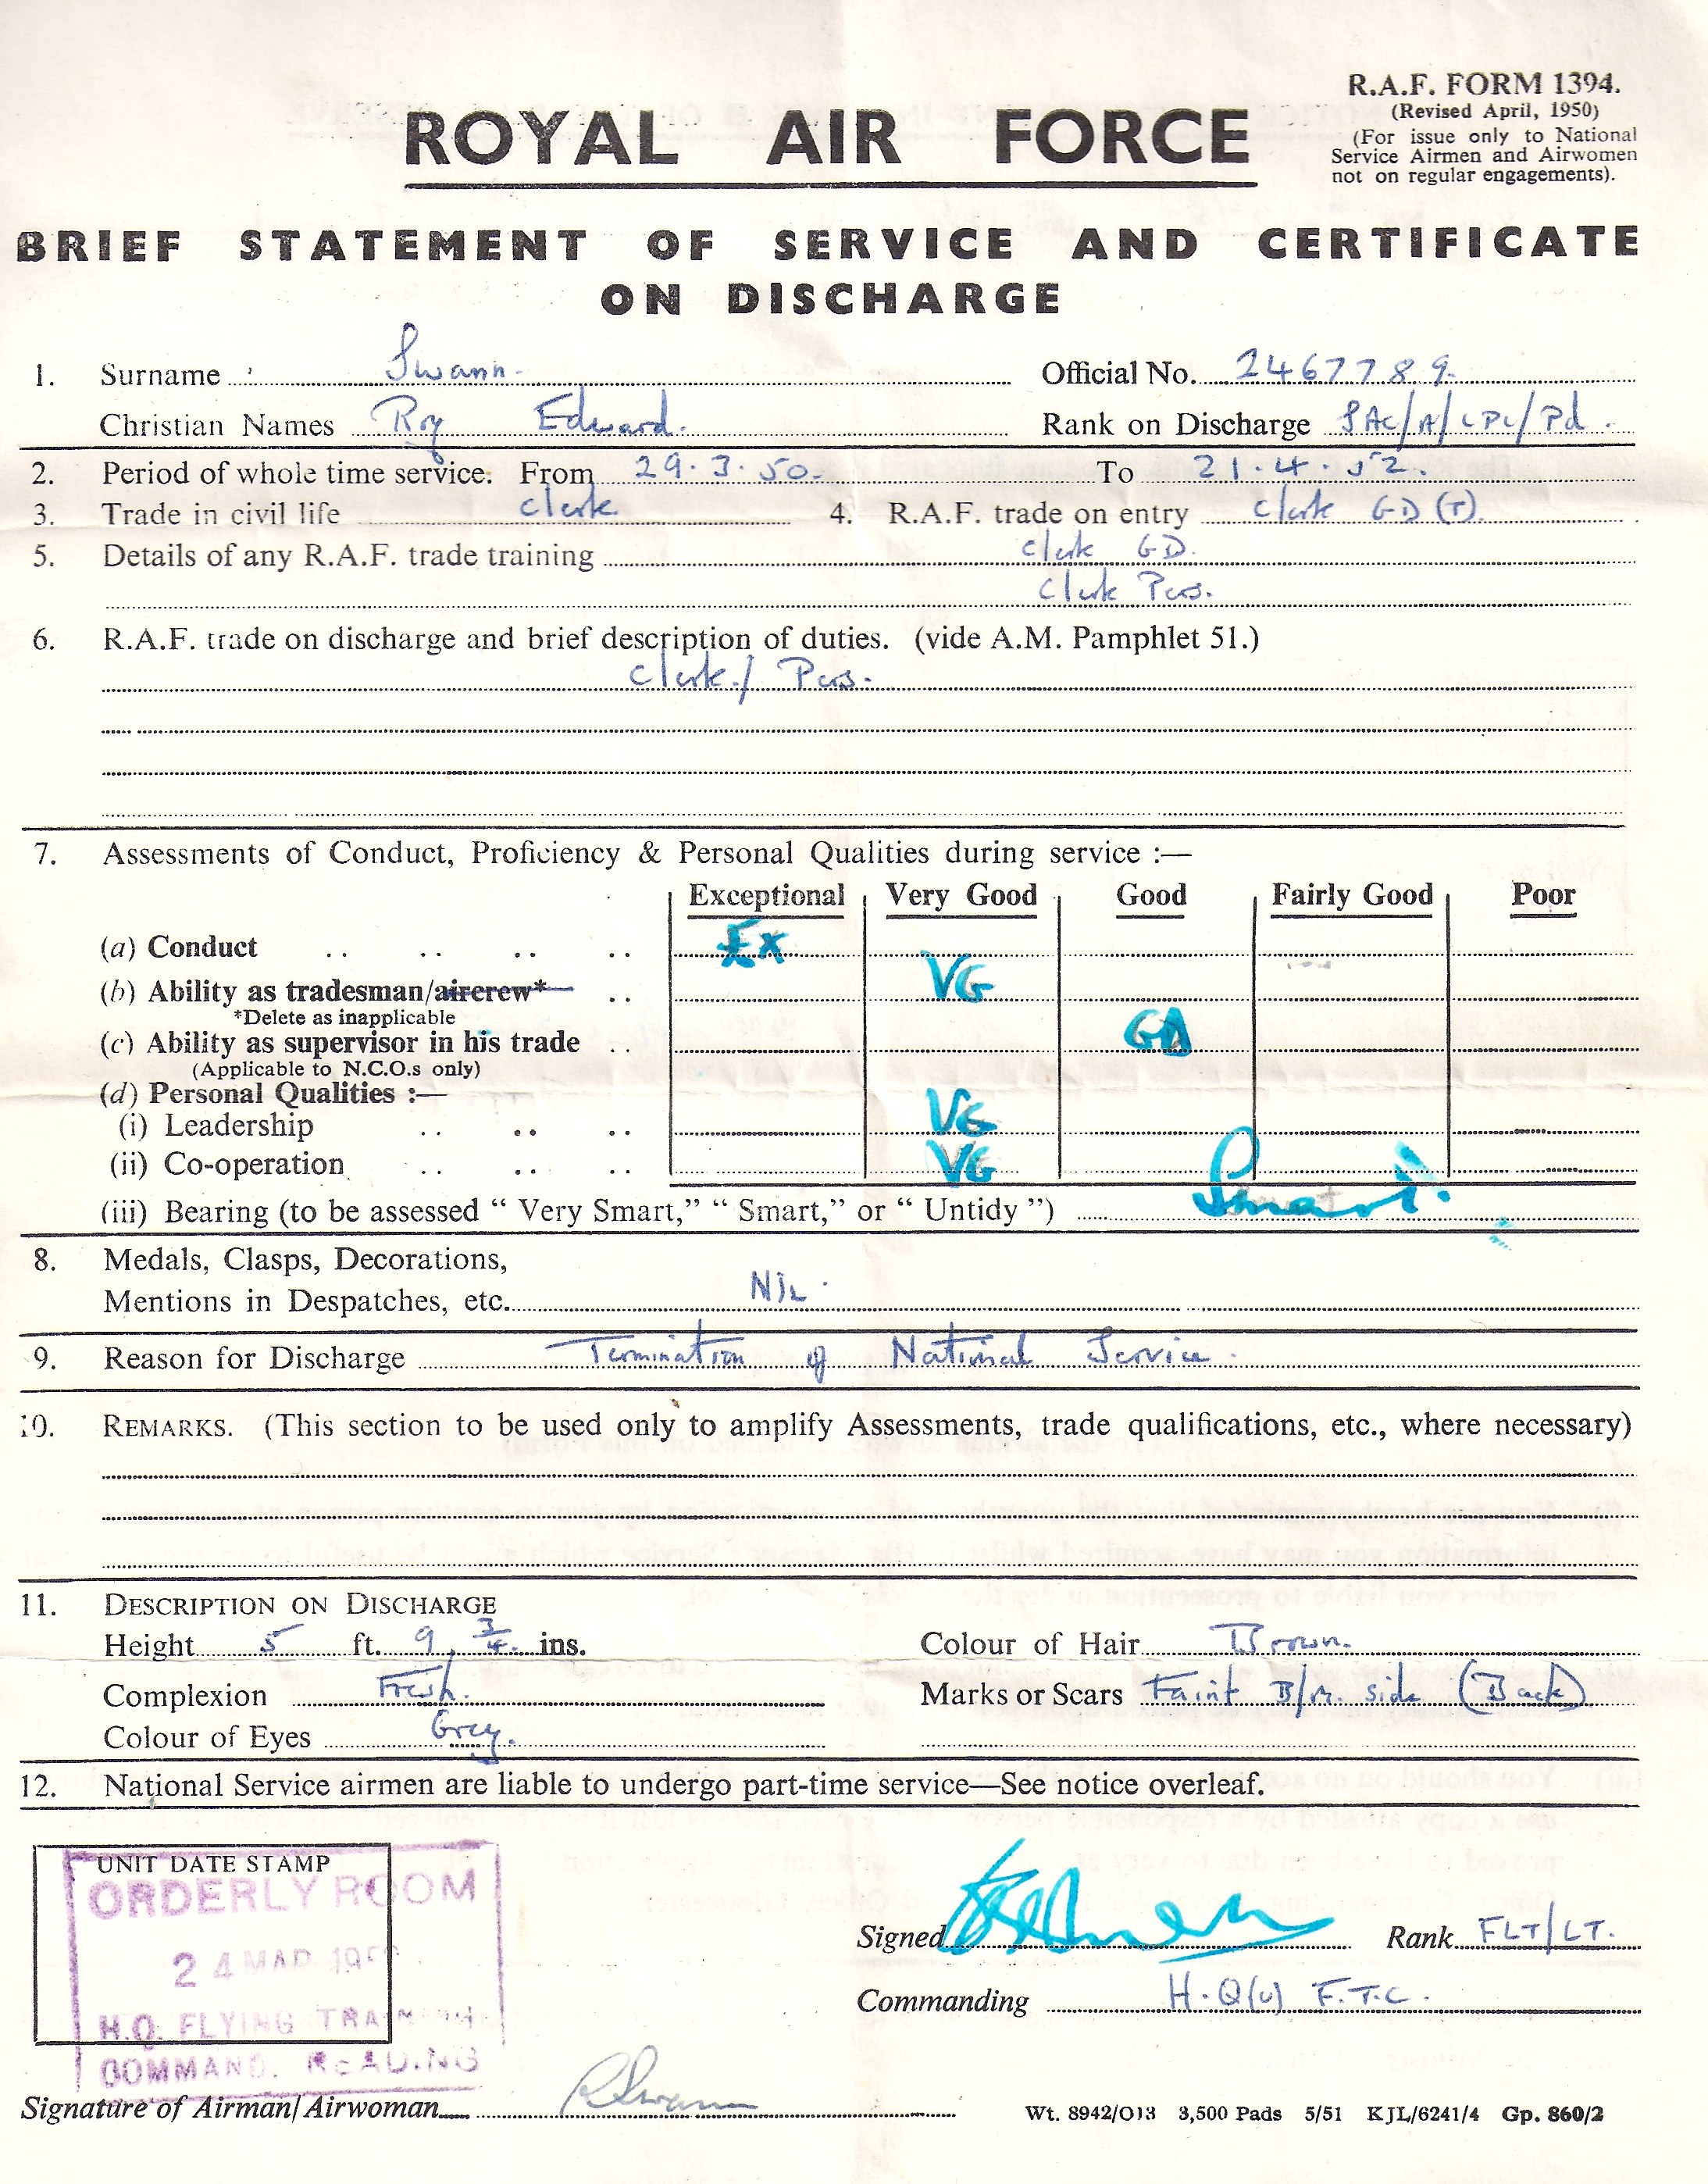 R.A.F. FORM 1394.
(Revised April, 1950)
(For issue only to National
Service Airmen and Airwomen
not on regular engagements).
ROYAL AIR FORCE
BRIEF STATEMENT OF SERVICE AND CERTIFICATE
ON DISCHARGE
1. Surname Swann. Official No. 2467789.
Christian Names Roy Edward. Rank on Discharge SAC/A/CPL/Pd.
2. Period of whole time service: From 29.3.50. To 21.4.52.
3. Trade in civil life Clerk 4. R.A.F. trade on entry Clerk GD (T).
5. Details of any R.A.F. trade training Clerk GD.
Clerk Pers.
6. R.A.F. trade on discharge and brief description of duties. (vide A.M. Pamphlet 51.)
Clerk/ Pers.
7. Assessments of Conduct, Proficiency & Personal Qualities during service :—
Exceptional Very Good Good Fairly Good Poor
(a) Conduct .. .. .. .. EX
(b) Ability as tradesman/aircrew* .. VG
*Delete as inapplicable
(c) Ability as supervisor in his trade .. GD
(Applicable to N.C.O.s only)
(d) Personal Qualities :—
(i) Leadership .. .. .. VG
(ii) Co-operation .. .. .. VG
(iii) Bearing (to be assessed “ Very Smart,” “ Smart,” or “ Untidy ”) Smart.
8. Medals, Clasps, Decorations,
Mentions in Despatches, etc. NIL.
9. Reason for Discharge Termination of National Service.
10. REMARKS. (This section to be used only to amplify Assessments, trade qualifications, etc., where necessary)
11. DESCRIPTION ON DISCHARGE
Height 5 ft. 9 3/4 ins. Colour of Hair Brown.
Complexion Fresh. Marks or Scars Faint B/M. side (Back)
Colour of Eyes Grey.
12. National Service airmen are liable to undergo part-time service—See notice overleaf.
UNIT DATE STAMP
ORDERLY ROOM
24 MAR
H.Q. FLYING TRAINING
COMMAND. READING
Signed Rank FLT/LT.
Commanding H.Q(U) F.T.C.
Signature of Airman/Airwoman RSwann
Wt. 8942/O13 3,500 Pads 5/51 KJL/6241/4 Gp. 860/2